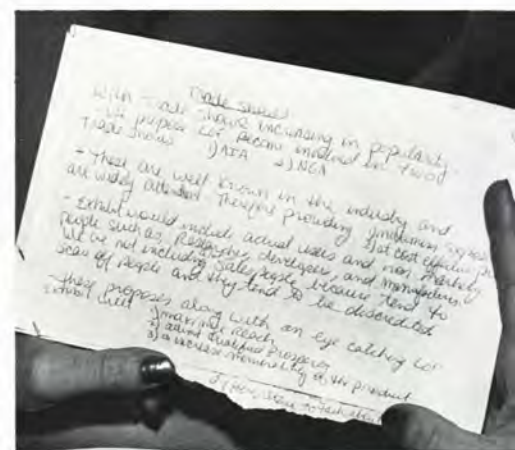 Trade Shows
With trade shows increasing in popularity.
- We propose Cor become involved in two
Trade Shows 1) AIA 2) NGA
- These are well known in the industry and
are widely attended. Therefore providing 1) maximum exposure
2) at cost effective
- Exhibit would include actual users and non marketing
people such as, Researcher, developers, and manufacturers.
We're not including Sales people because tend to
scare off people and they tend to be discredited
- These proposes along with an eye catching Cor
exhibit will
1) maximize reach
2) qualified prospects
3) increase memorability of the product